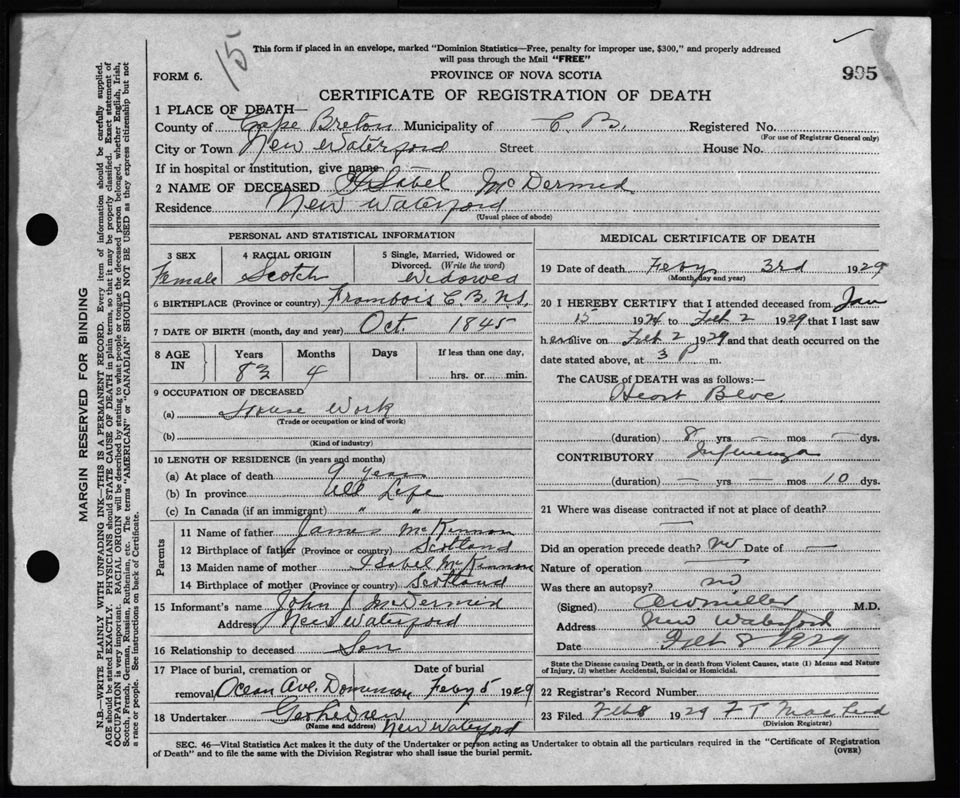 15
This form if placed in an envelope, marked "Dominion Statistics—Free, penalty for improper use, $300," and properly addressed
will pass through the Mail "FREE"
FORM 6.
PROVINCE OF NOVA SCOTIA
995
CERTIFICATE OF REGISTRATION OF DEATH
1 PLACE OF DEATH—
County of Cape Breton Municipality of C. B. Registered No.
(For use of Registrar General only)
City or Town New Waterford Street House No.
If in hospital or institution, give name
2 NAME OF DECEASED Isabel McDermid
Residence New Waterford
(Usual place of abode)
PERSONAL AND STATISTICAL INFORMATION
3 SEX 4 RACIAL ORIGIN 5 Single, Married, Widowed or
Divorced. (Write the word)
Female Scotch Widowed
6 BIRTHPLACE (Province or country) Frambois C.B. N.S.
7 DATE OF BIRTH (month, day and year) Oct. 1845
8 AGE IN Years Months Days If less than one day,
83 4 hrs. or min.
9 OCCUPATION OF DECEASED
(a) House Work
(Trade or occupation or kind of work)
(b)
(Kind of industry)
10 LENGTH OF RESIDENCE (in years and months)
(a) At place of death 9 years
(b) In province All Life
(c) In Canada (if an immigrant) " "
Parents
11 Name of father James McKinnon
12 Birthplace of father (Province or country) Scotland
13 Maiden name of mother Isabel McKinnon
14 Birthplace of mother (Province or country) Scotland
15 Informant's name John J McDermid
Address New Waterford
16 Relationship to deceased Son
17 Place of burial, cremation or Date of burial
removal Ocean Ave. Dominion Feby 5 1929
18 Undertaker
(Name and address) New Waterford
MEDICAL CERTIFICATE OF DEATH
19 Date of death Feby 3rd 1929
(Month, day and year)
20 I HEREBY CERTIFY that I attended deceased from Jan
15 192 to Feb 2 1929 that I last saw
her alive on Feb 2 1929 and that death occurred on the
date stated above, at 3 P m.
The CAUSE of DEATH was as follows:—
Heart Bloc
(duration) 8 yrs — mos — dys.
CONTRIBUTORY Influenza
(duration) — yrs — mos 10 dys.
21 Where was disease contracted if not at place of death?
—
Did an operation precede death? no Date of —
Nature of operation —
Was there an autopsy? no
(Signed) Miller M.D.
Address New Waterford
Date Feb 8 1929
State the Disease causing Death, or in death from Violent Causes, state (1) Means and Nature
of Injury, (2) whether Accidental, Suicidal or Homicidal.
22 Registrar's Record Number
23 Filed Feb 8 1929 F T MacLeod
(Division Registrar)
SEC. 46—Vital Statistics Act makes it the duty of the Undertaker or person acting as Undertaker to obtain all the particulars required in the "Certificate of Registration
of Death" and to file the same with the Division Registrar who shall issue the burial permit.
(OVER)
MARGIN RESERVED FOR BINDING
N.B.—WRITE PLAINLY WITH UNFADING INK—THIS IS A PERMANENT RECORD. Every item of information should be carefully supplied.
AGE should be stated EXACTLY. PHYSICIANS should STATE CAUSE OF DEATH in plain terms, so that it may be properly classified. Exact statement of
OCCUPATION is very important. RACIAL ORIGIN will be described by stating to what people or tongue the deceased person belonged, whether English, Irish,
Scotch, French, German, Russian, Ruthenian, etc. The terms "AMERICAN" or "CANADIAN" SHOULD NOT BE USED as they express citizenship but not
a race or people. See instructions on back of Certificate.